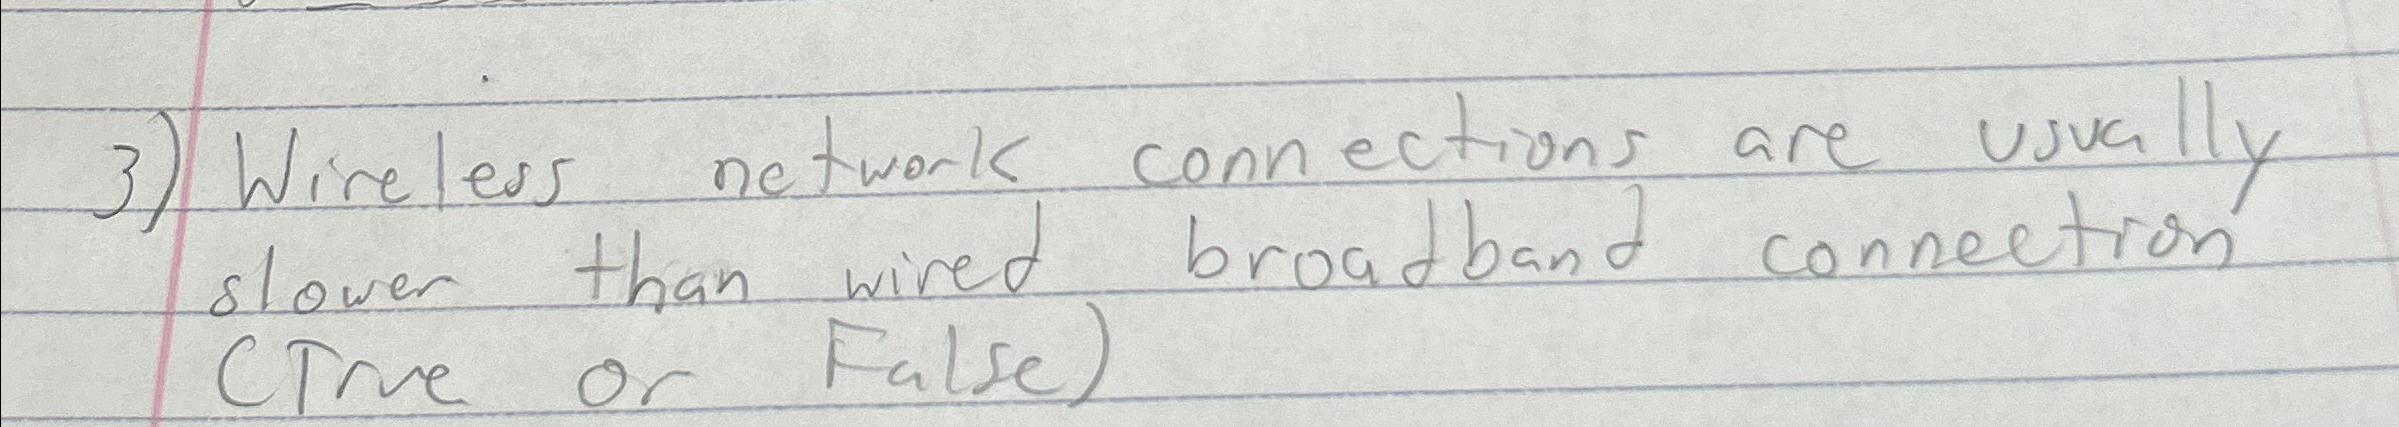 3) Wireless network connections are usually
slower than wired broadband connection
(True or False)